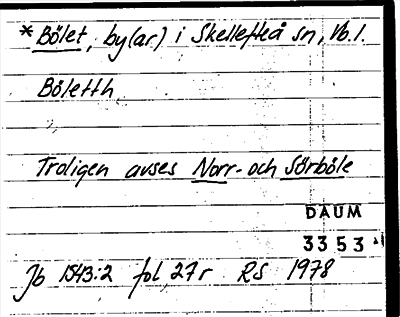 *Bölet, by(ar) i Skellefteå sn, Vb.l.
Böletth
Troligen avses Norr- och Sörböle
DAUM
3353
Jb 1543:2 fol 27r RS 1978